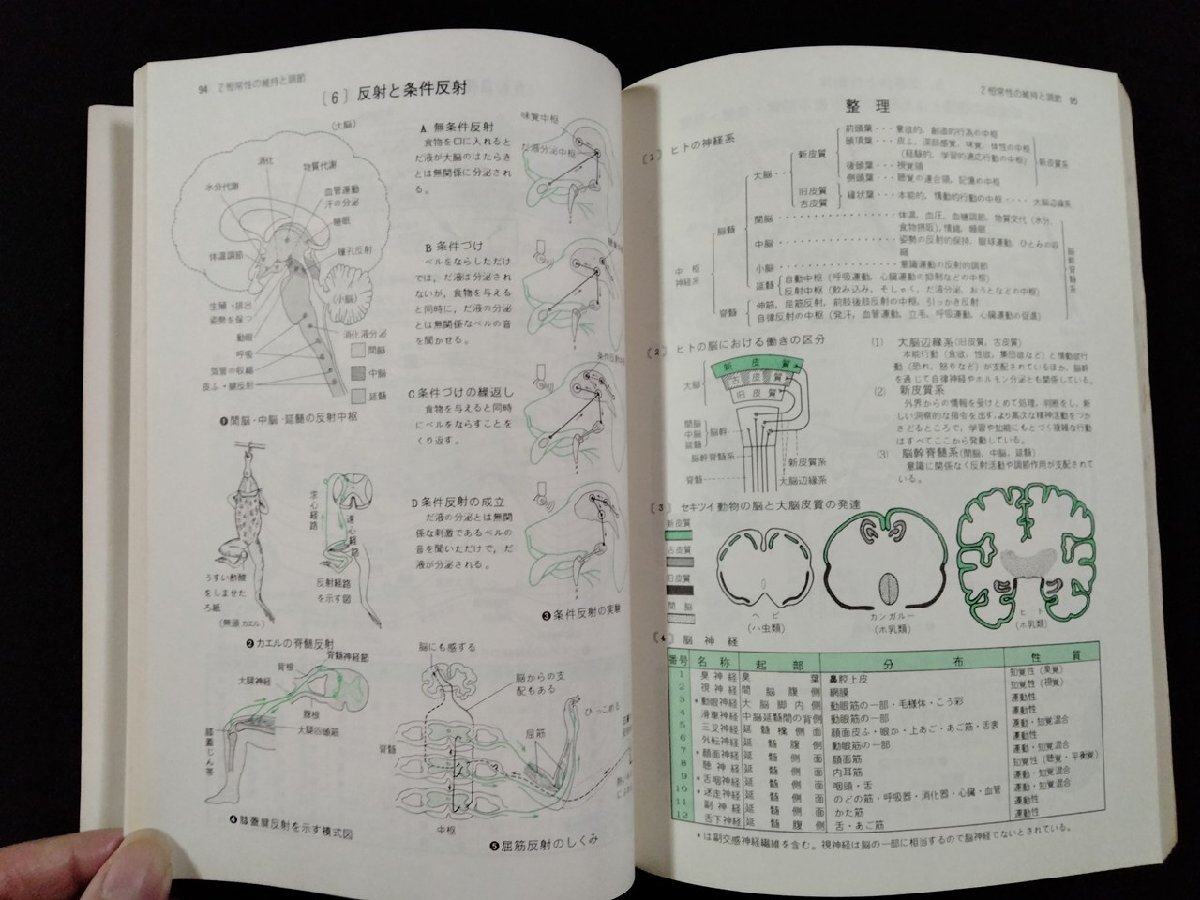 94 2 恒常性の維持と調節
〔6〕反射と条件反射
(大脳)
消化
物質代謝
水分代謝
血管運動
汗の分泌
睡眠
瞳孔反射
体温調節
(小脳)
生殖・排出
姿勢を保つ
動眼
呼吸
気管の収縮
皮ふ・腱反射
消化液分泌
間脳
中脳
延髄
❶間脳・中脳・延髄の反射中枢
A 無条件反射
食物を口に入れると
だ液が大脳のはたらき
とは無関係に分泌され
る。
味覚中枢
だ液分泌中枢
B 条件づけ
ベルをならしただけ
では, だ液は分泌され
ないが, 食物を与える
と同時に, だ液の分泌
とは無関係なベルの音
を聞かせる。
C 条件づけの繰返し
食物を与えると同時
にベルをならすことを
くり返す。
D 条件反射の成立
だ液の分泌とは無関
係な刺激であるベルの
音を聞いただけで, だ
液が分泌される。
❸条件反射の実験
求心経路
遠心経路
うすい酢酸
をしませた
ろ紙
(無頭カエル)
反射経路
を示す図
❷カエルの脊髄反射
脊髄神経節
背根
大腿神経
腹根
大腿四頭筋
膝蓋じん帯
❹膝蓋腱反射を示す模式図
脳にも感ずる
脳からの支
配もある
ひっこめる
屈筋
脊髄
中枢
❺屈筋反射のしくみ
2 恒常性の維持と調節 95
整理
〔1〕ヒトの神経系
中枢
神経系
脳髄
大脳
新皮質
前頭葉・・・意欲的, 創造的行為の中枢
頭頂葉・・・皮ふ, 深部感覚, 味覚, 体性の中枢
(経験的, 学習的適応行動の中枢)
後頭葉・・・視覚領
側頭葉・・・聴覚の連合領, 記憶の中枢
新皮質系
旧皮質
古皮質
縁状葉・・・本能的, 情動的行動の中枢・・・・大脳辺縁系
間脳・・・体温, 血圧, 血糖調節, 物質交代(水分,
食物摂取), 情緒, 睡眠
中脳・・・姿勢の反射的保持, 眼球運動, ひとみの収
縮
小脳・・・意識運動の反射的調節
延髄
自動中枢(呼吸運動, 心臓運動の抑制などの中枢)
反射中枢(飲み込み, そしゃく, だ液分泌, おうとなどの中枢)
脊髄
伸筋, 屈筋反射, 前肢後肢反射の中枢, 引っかき反射
自律反射の中枢(発汗, 血管運動, 立毛, 呼吸運動, 心臓運動の促進)
脳幹脊髄系
〔2〕ヒトの脳における働きの区分
新皮質
古皮質
旧皮質
大脳
間脳
中脳
延髄
脳幹
脳幹脊髄系
脊髄
新皮質系
大脳辺縁系
(1) 大脳辺縁系(旧皮質, 古皮質)
本能行動(食欲, 性欲, 集団欲など)と情動欲行
動(恐れ, 怒りなど)が支配されているほか, 脳幹
を通じて自律神経やホルモン分泌とも関係している。
(2) 新皮質系
外界からの情報を受けとめて処理, 判断をし, 新
しい洞察的な指令を出す, より高次な精神活動をつか
さどるところで, 学習や知能にもとづく複雑な行動
はすべてここから発動している。
(3) 脳幹脊髄系(間脳, 中脳, 延髄)
意識に関係なく反射活動や調節作用が支配されて
いる。
〔3〕セキツイ動物の脳と大脳皮質の発達
新皮質
古皮質
旧皮質
間脳
ヘビ
(ハ虫類)
カンガルー
(ホ乳類)
ヒト
(ホ乳類)
〔4〕脳神経
番号 名称 起部 分布 性質
1 臭神経 臭葉 鼻腔上皮 知覚性(臭覚)
2 視神経 間脳腹側 網膜 知覚性(視覚)
3 *動眼神経 大脳脚内側 動眼筋の一部・毛様体・こう彩 運動性
4 滑車神経 中脳延髄間の背側 動眼筋の一部 運動性
5 三叉神経 延髄橋側面 顔面皮ふ・眼か・上あご・あご筋・舌表 運動・知覚混合
6 外転神経 延髄腹側 動眼筋の一部 運動性
7 *顔面神経 延髄側面 顔面筋 運動・知覚混合
8 聴神経 延髄側面 内耳筋 知覚性(聴覚・平衡覚)
9 *舌咽神経 延髄側面 咽頭・舌 運動・知覚混合
10 *迷走神経 延髄側面 のどの筋・呼吸器・消化器・心臓・血管 運動・知覚混合
11 副神経 延髄側面 かた筋 運動性
12 舌下神経 延髄腹側 舌・あご筋 運動性
*は副交感神経繊維を含む。視神経は脳の一部に相当するので脳神経でないとされている。